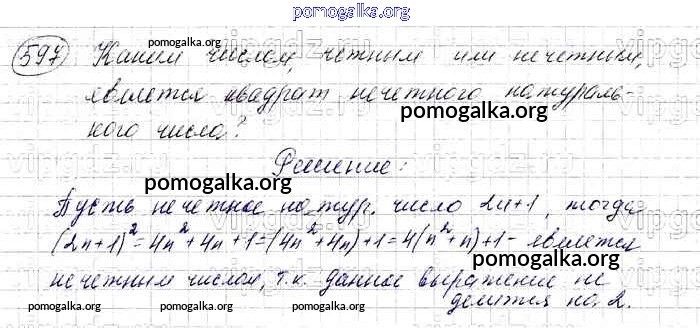 pomogalka.org
597 Каким числом, четным или нечетным,
является квадрат нечетного натураль-
ного числа?
Решение:
Пусть нечетное натур. число 2n+1, тогда
(2n+1)² = 4n² + 4n + 1 = (4n² + 4n) + 1 = 4(n² + n) + 1 - является
нечетным числом, т.к. данное выражение не
делится на 2.
pomogalka.org
pomogalka.org
pomogalka.org
pomogalka.org
pomogalka.org
pomogalka.org
pomogalka.org